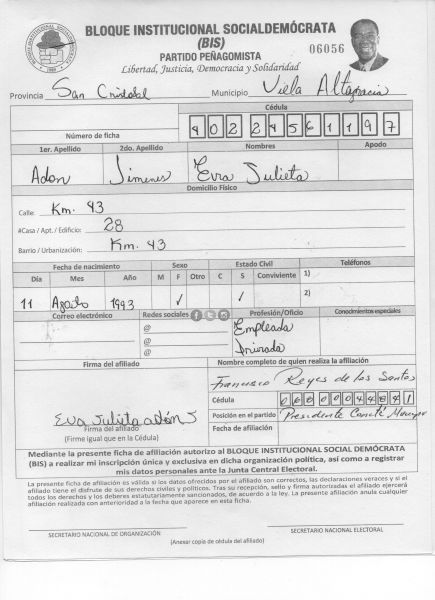 BLOQUE INSTITUCIONAL SOCIALDEMÓCRATA
(BIS)
PARTIDO PEÑAGOMISTA
06056
Libertad, Justicia, Democracia y Solidaridad
Provincia San Cristobal Municipio Viela Altagracia
Cédula
Número de ficha 40224561197
1er. Apellido 2do. Apellido Nombres Apodo
Adon Jimenes Eva Julieta
Domicilio Físico
Calle: Km. 43
#Casa / Apt. / Edificio: 28
Barrio / Urbanización: Km. 43
Fecha de nacimiento Sexo Estado Civil Teléfonos
Día Mes Año M F Otro C S Conviviente 1)
11 Agosto 1993 ✓ ✓ 2)
Correo electrónico Redes sociales Profesión/Oficio Conocimientos especiales
@ Empleada
@ Privada
@
Firma del afiliado Nombre completo de quien realiza la afiliación
Francisco Reyes de los Santos
Cédula
Eva Julieta adón J Posición en el partido Presidente Comité
Firma del afiliado Fecha de afiliación
(Firme igual que en la Cédula)
Mediante la presente ficha de afiliación autorizo al BLOQUE INSTITUCIONAL SOCIAL DEMÓCRATA
(BIS) a realizar mi inscripción única y exclusiva en dicha organización política, así como a registrar
mis datos personales ante la Junta Central Electoral.
La presente ficha de afiliación es válida si los datos ofrecidos por el afiliado son correctos, las declaraciones veraces y si el
afiliado tiene el disfrute de sus derechos civiles y políticos. Tras su recepción, sello y firma autorizadas el afiliado ejercerá
todos los derechos y los deberes estatutariamente sancionados, de acuerdo a la ley. La presente afiliación anula cualquier
afiliación realizada con anterioridad a la fecha que aparece en esta ficha.
SECRETARIO NACIONAL DE ORGANIZACIÓN SECRETARIO NACIONAL ELECTORAL
(Anexar copia de cédula del afiliado)